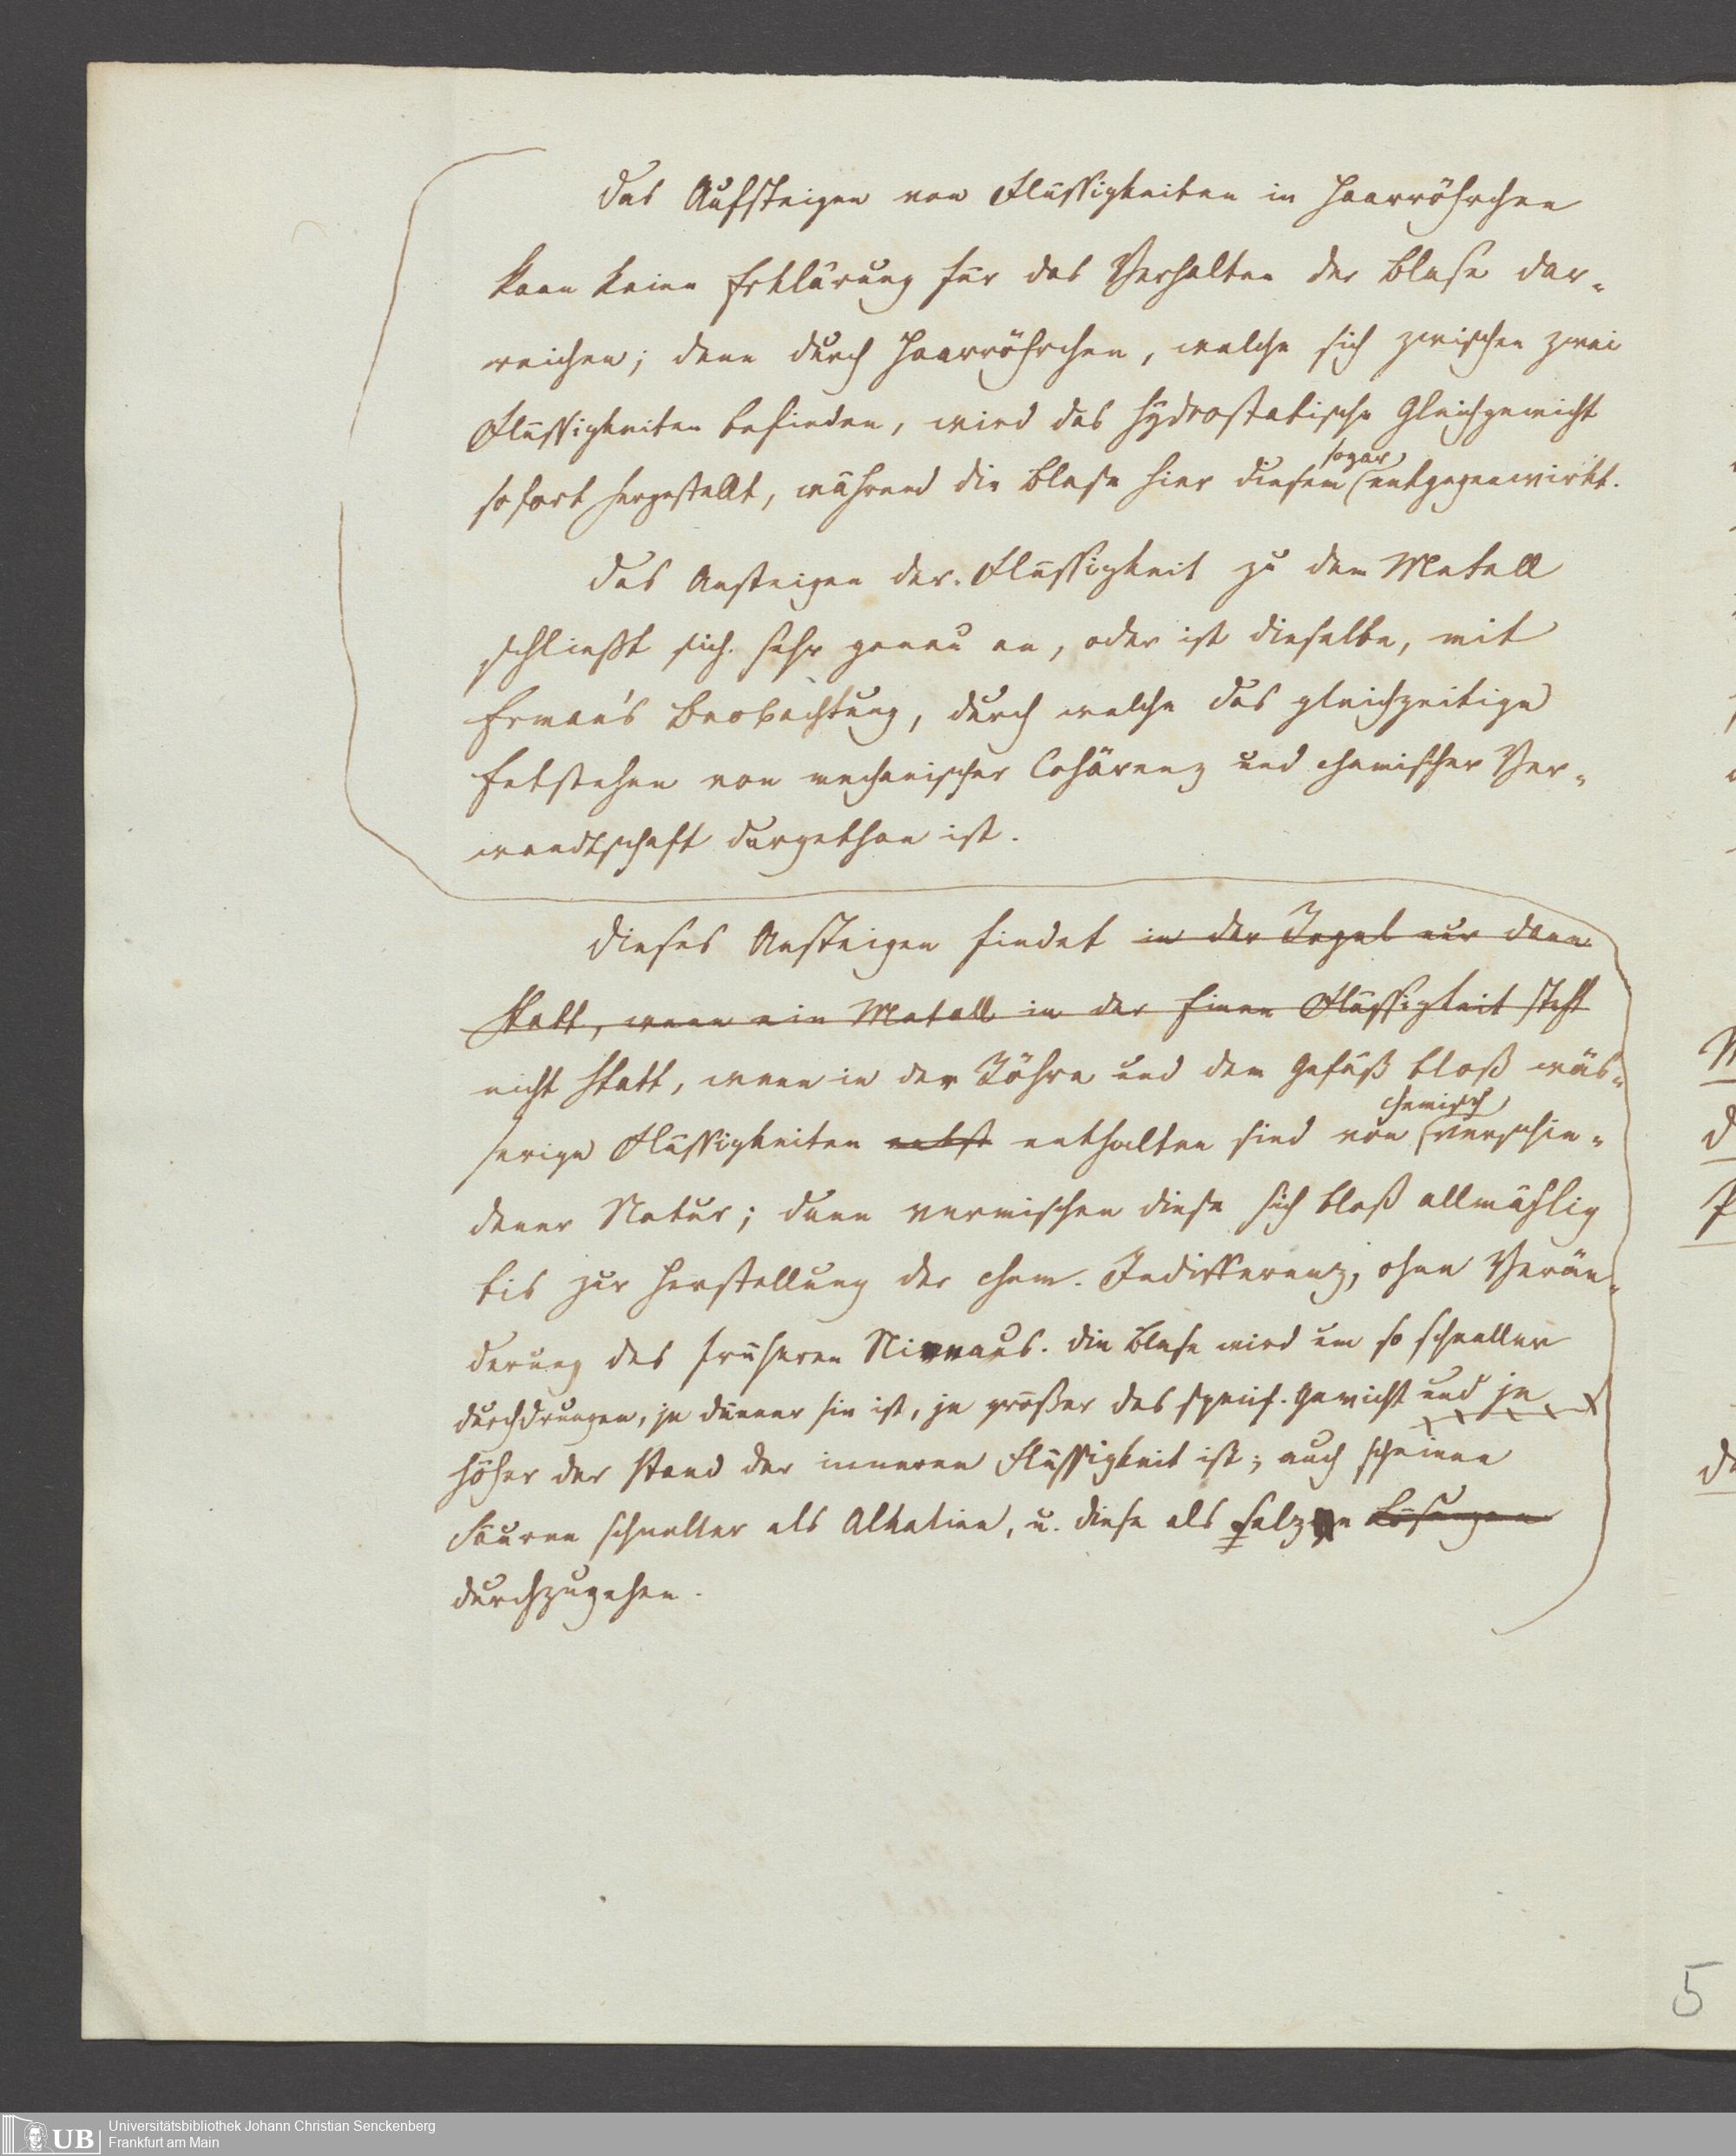 Das Aufsteigen von Flüssigkeiten in Haarröhrchen
kann keine Erklärung für das Verhalten der Blase dar-
reichen; denn durch Haarröhrchen, welche sich zwischen zwei
Flüssigkeiten befinden, wird das hydrostatische Gleichgewicht
sogar
sofort hergestellt, während die Blase hier diesem entgegenwirkt.
Das Ansteigen der Flüssigkeit zu dem Metall
schließt sich sehr genau an, oder ist dieselbe, mit
Erman's Beobachtung, durch welche das gleichzeitige
Entstehen von mechanischer Cohärenz und chemischer Ver-
wandtschaft dargethan ist.
Dieses Ansteigen findet in der Regel nur dann
statt, wenn ein Metall in der Einen Flüssigkeit steht
nicht statt, wenn in der Röhre und dem Gefäß bloß wäs-
chemisch
serige Flüssigkeiten nebst enthalten sind von verschie-
dener Natur; dann vermischen diese sich bloß allmählig
bis zur Herstellung der chem. Indifferenz, ohne Verän-
derung des früheren Niveaus. Die Blase wird um so schneller
durchdrungen, je dünner sie ist, je größer das specif. Gewicht und je
höher der Stand der inneren Flüssigkeit ist; auch scheinen
Säuren schneller als Alkalien, u. diese als Salze Lösungen
durchzugehen.
5
UB
Universitätsbibliothek Johann Christian Senckenberg
Frankfurt am Main